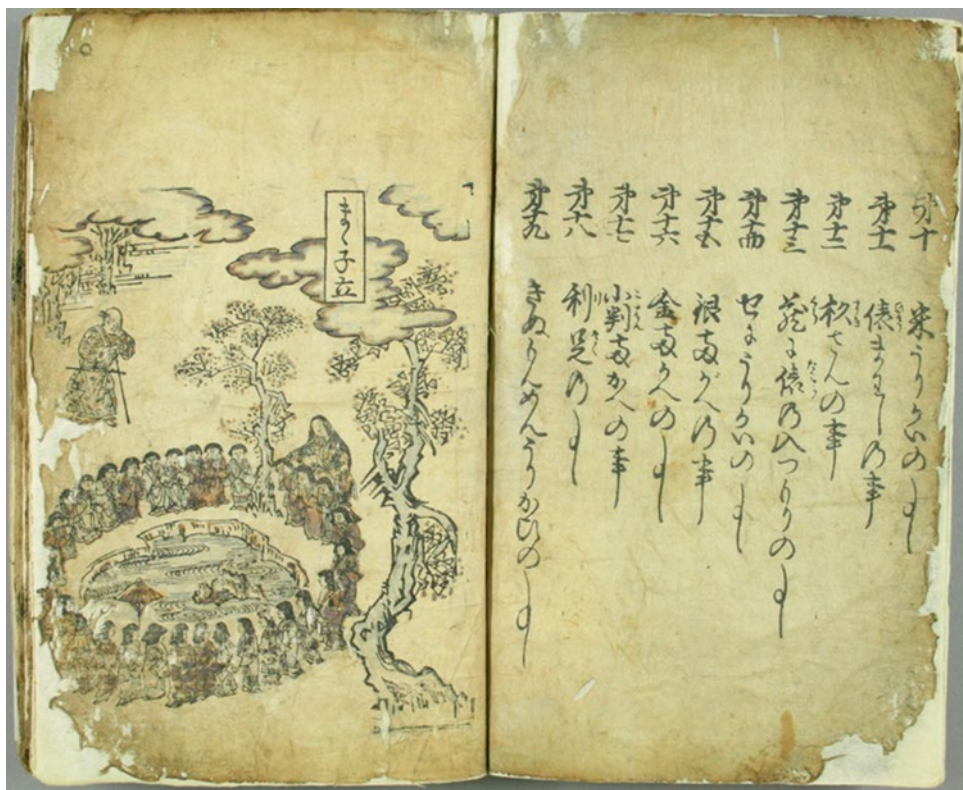 第十 米うりかいの事
第十一 俵まわしの事
第十二 杉さんの事
第十三 蔵に俵の入つもりの事
第十四 せにうりかいの事
第十五 銀両がへの事
第十六 金両かへの事
第十七 小判両かへの事
第十八 利足の事
第十九 きぬもめんうりかひの事
まゝ子立